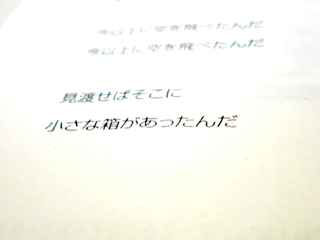 今以上に空を飛べたんだ
今以上に空を飛べたんだ
見渡せばそこに
小さな箱があったんだ